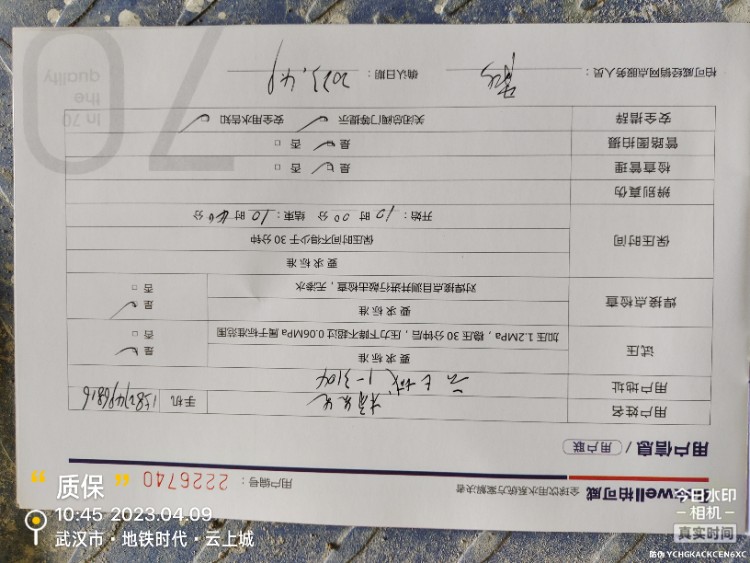 柏可威
全球饮用水系统方案解决者
用户编号：2226740
用户信息 / 用户联
用户姓名
手机 15827496816
用户地址 云上城 1-3104
试压
要求标准
加压1.2MPa，稳压30分钟后，压力下降不超过0.06MPa 属于标准范围
是
否
焊接点检查
要求标准
对焊接点目测并进行敲击检查，无渗水
是
否
保压时间
要求标准
保压时间不得少于30分钟
开始：10时00分 结束：10时40分
辨别真伪
检查管理 是 否
管路图拍摄 是 否
安全措辞 关闭总阀门等提示 安全用水告知
柏可威经销网点服务人员：
确认日期：2023.4.9
In 70
the
quality
70
质保
10:45 2023.04.09
武汉市·地铁时代·云上城
今日水印
相机
真实时间
YCHGKACKCEN6XC